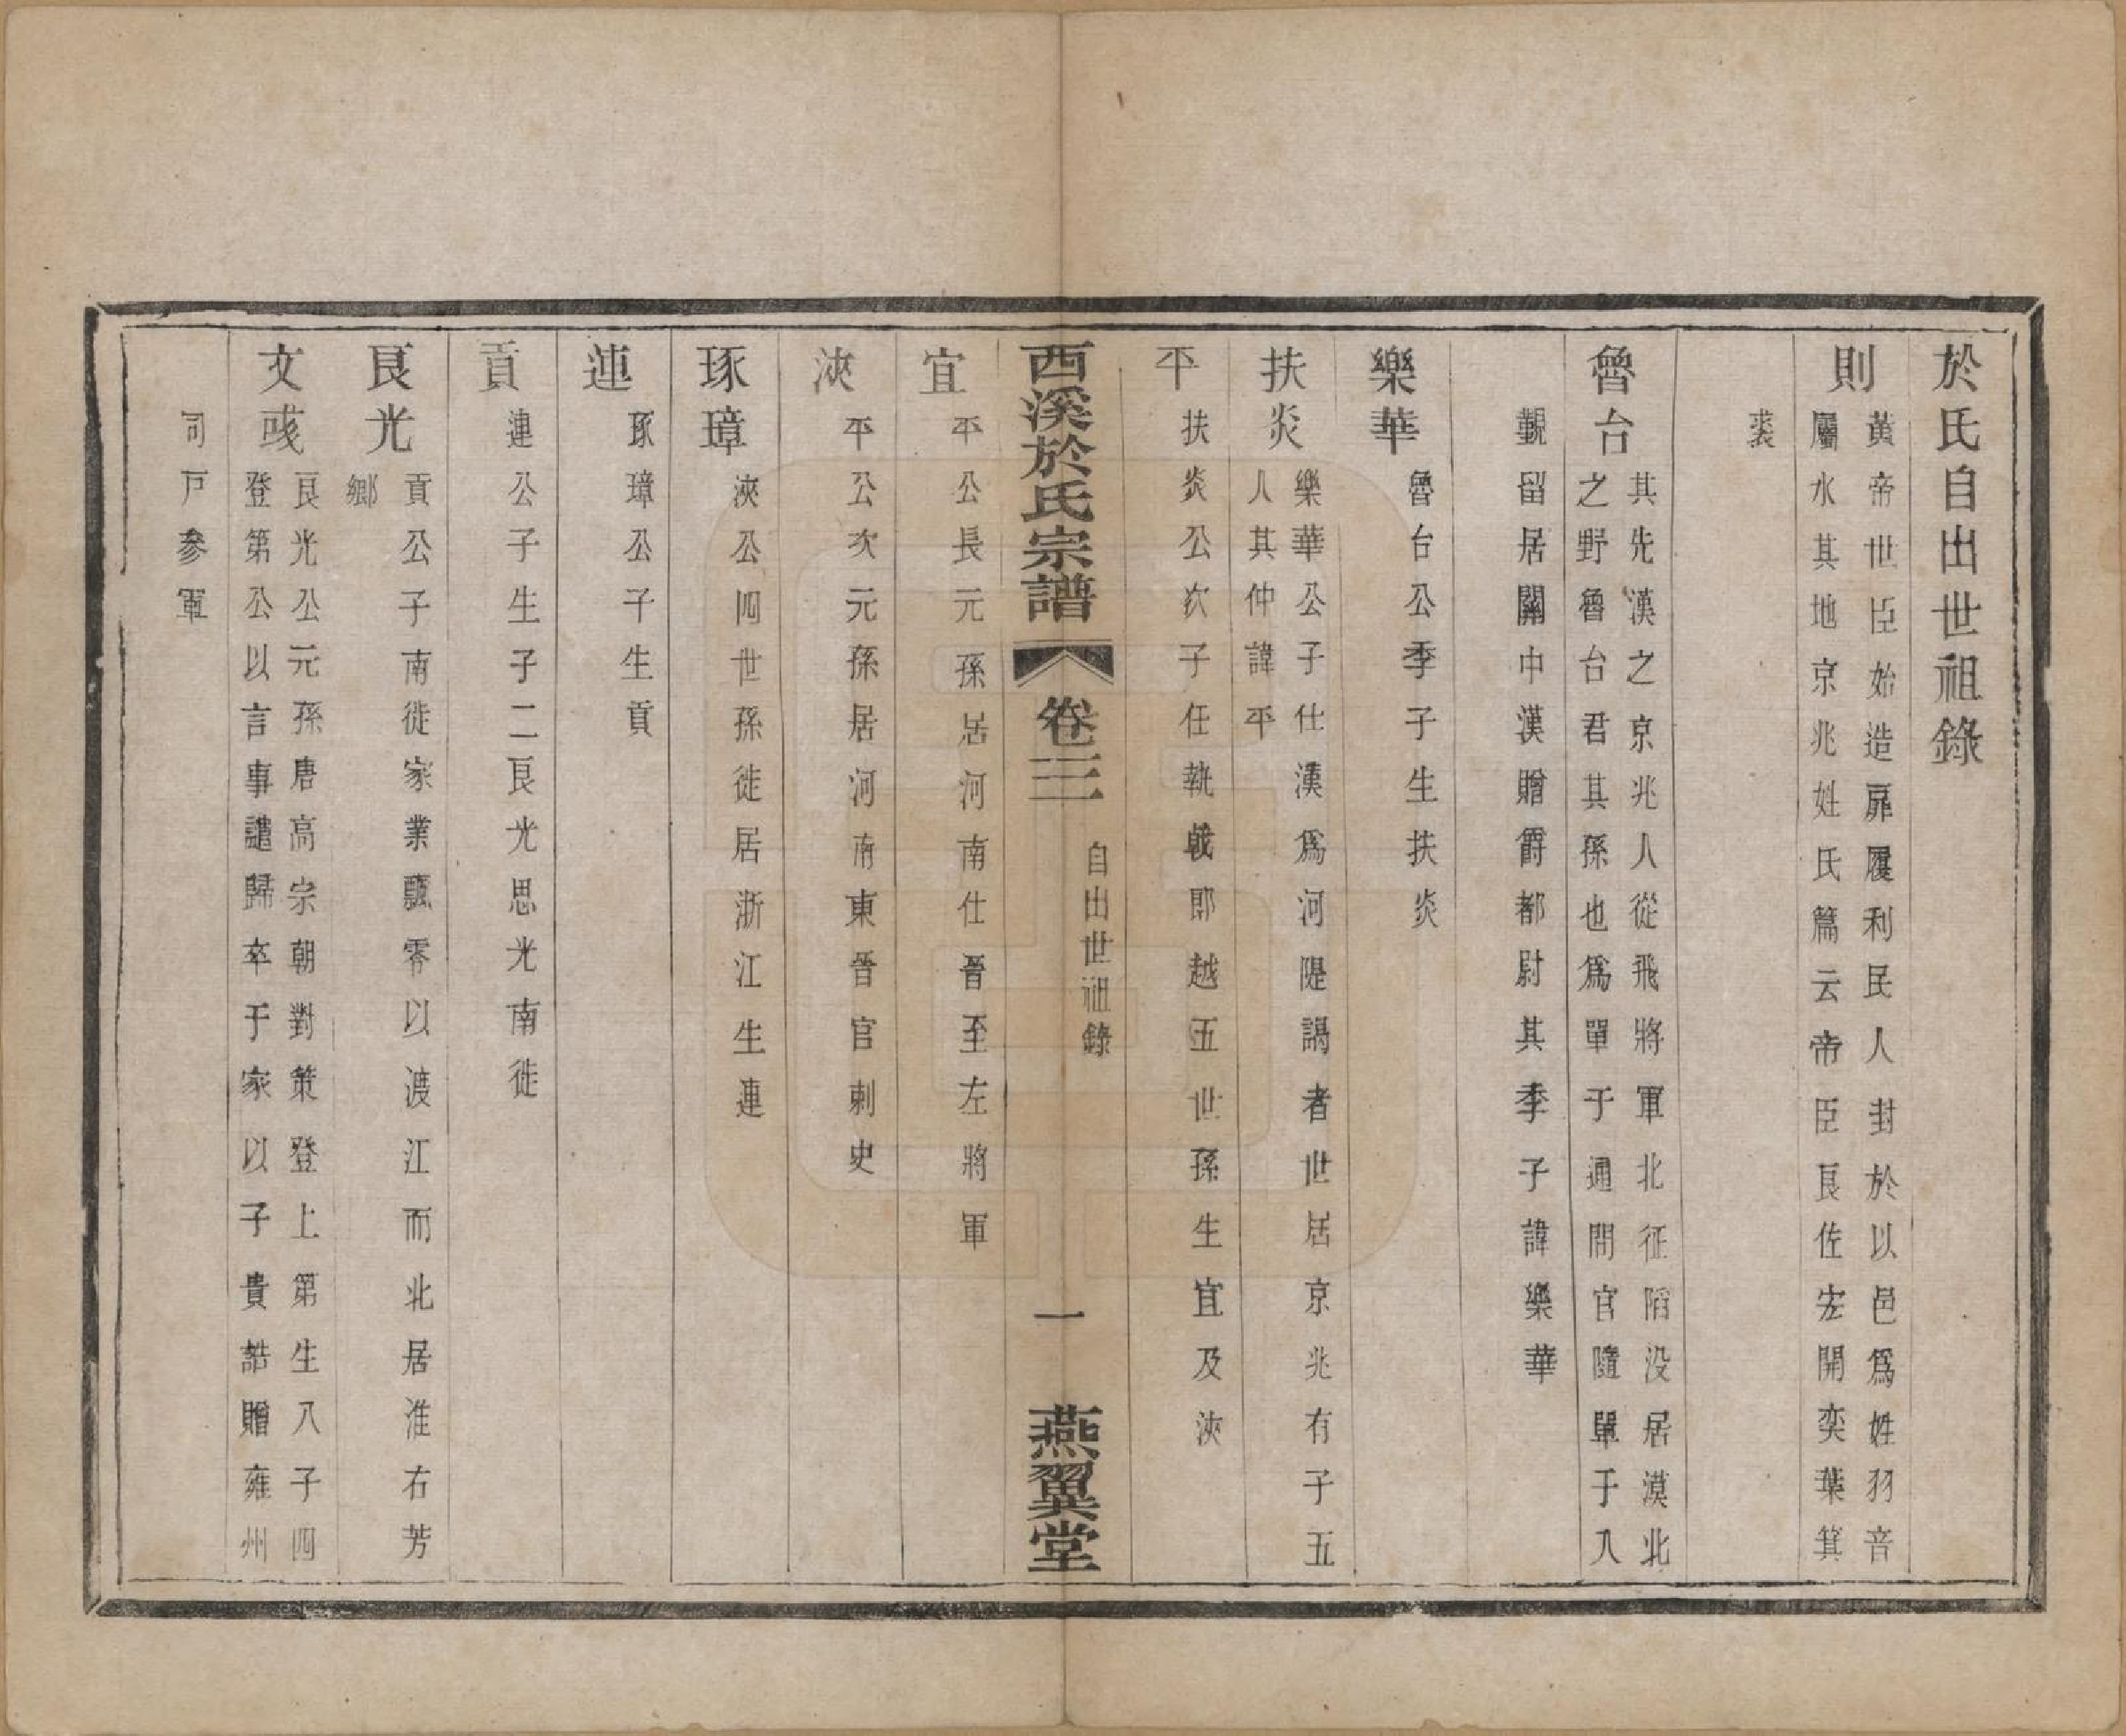 於氏自出世祖錄
則
黃帝世臣始造扉履利民人封於以邑爲姓羽音
屬水其地京兆姓氏篇云帝臣良佐宏開奕葉箕
裘
魯台
其先漢之京兆人從飛將軍北征陷没居漠北
之野魯台君其孫也爲單于通間官隨單于入
覲留居關中漢贈爵都尉其季子諱樂華
樂華
魯台公季子生扶炎
扶炎
樂華公子仕漢爲河隄謁者世居京兆有子五
人其仲諱平
平
扶炎公次子任執戟郎越五世孫生宜及浹
西溪於氏宗譜
卷三
自出世祖錄
一
燕翼堂
宜
平公長元孫居河南仕晉至左將軍
浹
平公次元孫居河南東晉官刺史
琢璋
浹公四世孫徙居浙江生連
連
琢璋公子生貢
貢
連公子生子二良光思光南徙
良光
貢公子南徙家業飄零以渡江而北居淮右芳
鄉
文彧
良光公元孫唐高宗朝對策登上第生八子四
登第公以言事譴歸卒于家以子貴誥贈雍州
司戸參軍